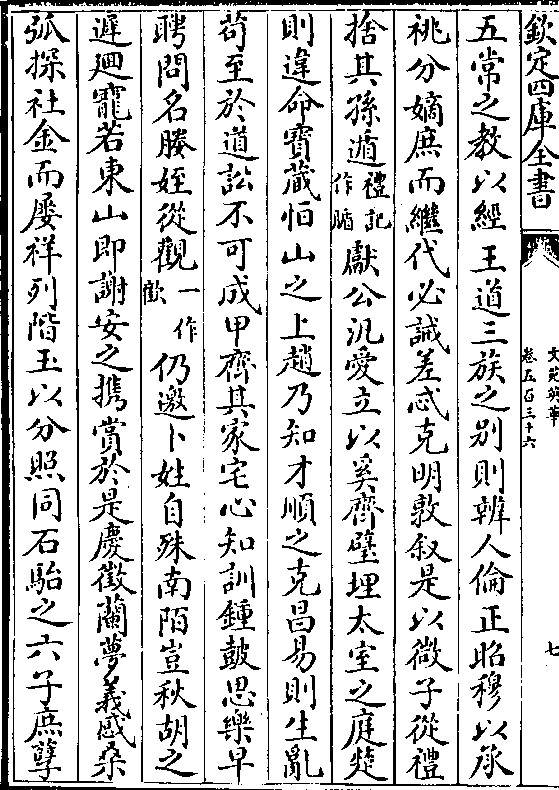 欽定四庫全書
文苑英華
卷五百三十六
七
五常之教以經王道三族之别則辨人倫正昭穆以承
祧分嫡庶而繼代必誡差忒克明敦叙是以微子從禮
捨其孫遁禮記作腯獻公汎愛立以奚齊璧埋太室之庭楚
則違命寶藏怕山之上趙乃知才順之克昌易則生亂
苟至於道訟不可成甲齊其家宅心知訓鍾鼓思樂早
聘問名媵姪從觀一作歡仍邀卜姓自殊南陌豈秋胡之
遲廻寵若東山即謝安之攜賞於是慶徵蘭夢義感桑
弧探社金而屢祥列階玉以分照同石駘之六子庶孽